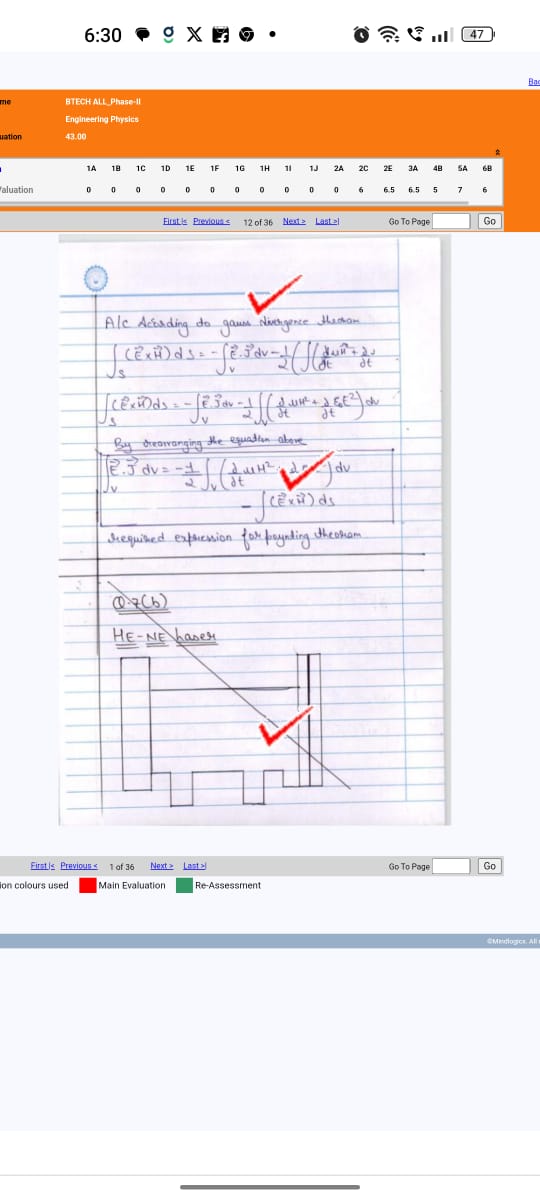 6:30
47
Bac
me
BTECH ALL_Phase-II
Engineering Physics
uation
43.00
1A 1B 1C 1D 1E 1F 1G 1H 1I 1J 2A 2C 2E 3A 4B 5A 6B
aluation 0 0 0 0 0 0 0 0 0 0 0 6 6.5 6.5 5 7 6
First |< Previous < 12 of 36 Next > Last >| Go To Page Go
A/c According to gauss divergence theorem
∫s (E⃗xH⃗) ds = - ∫v E⃗.J⃗ dv - 1/2 ∫
∫s (E⃗xH⃗) ds = - ∫v E⃗.J⃗ dv - 1/2 ∫v (∂/∂t μH² + ∂/∂t ε₀E²) dv
By rearranging the equation above
∫v E⃗.J⃗ dv = - 1/2 ∫v (∂/∂t μH² dv
- ∫ (E⃗xH⃗) ds
required expression for poynting theorem
Q.7(b)
HE-NE laser
First |< Previous < 1 of 36 Next > Last >| Go To Page Go
ion colours used Main Evaluation Re-Assessment
©Mindlogicx. All